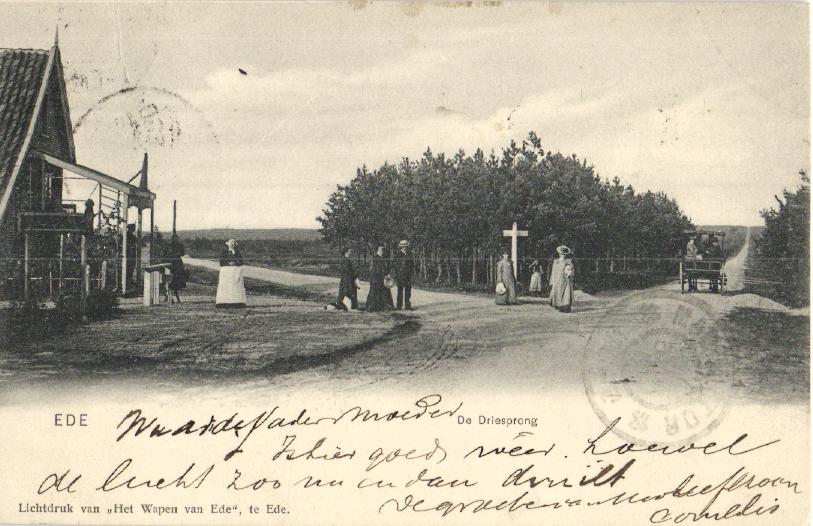 EDE
De Driesprong
Waarde Vader Moeder
Ishier goed weer. hoewel
de lucht zoo nu en dan druilt
De groeten van Uw liefh zoon
Cornelis
Lichtdruk van „Het Wapen van Ede“, te Ede.